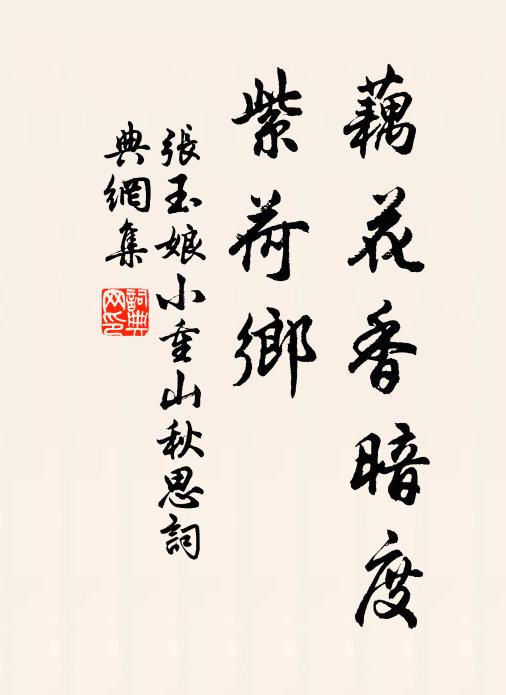 藕花香暗度
紫荷鄉
張玉娘小重山秋思詞
典網集
詞典
网印